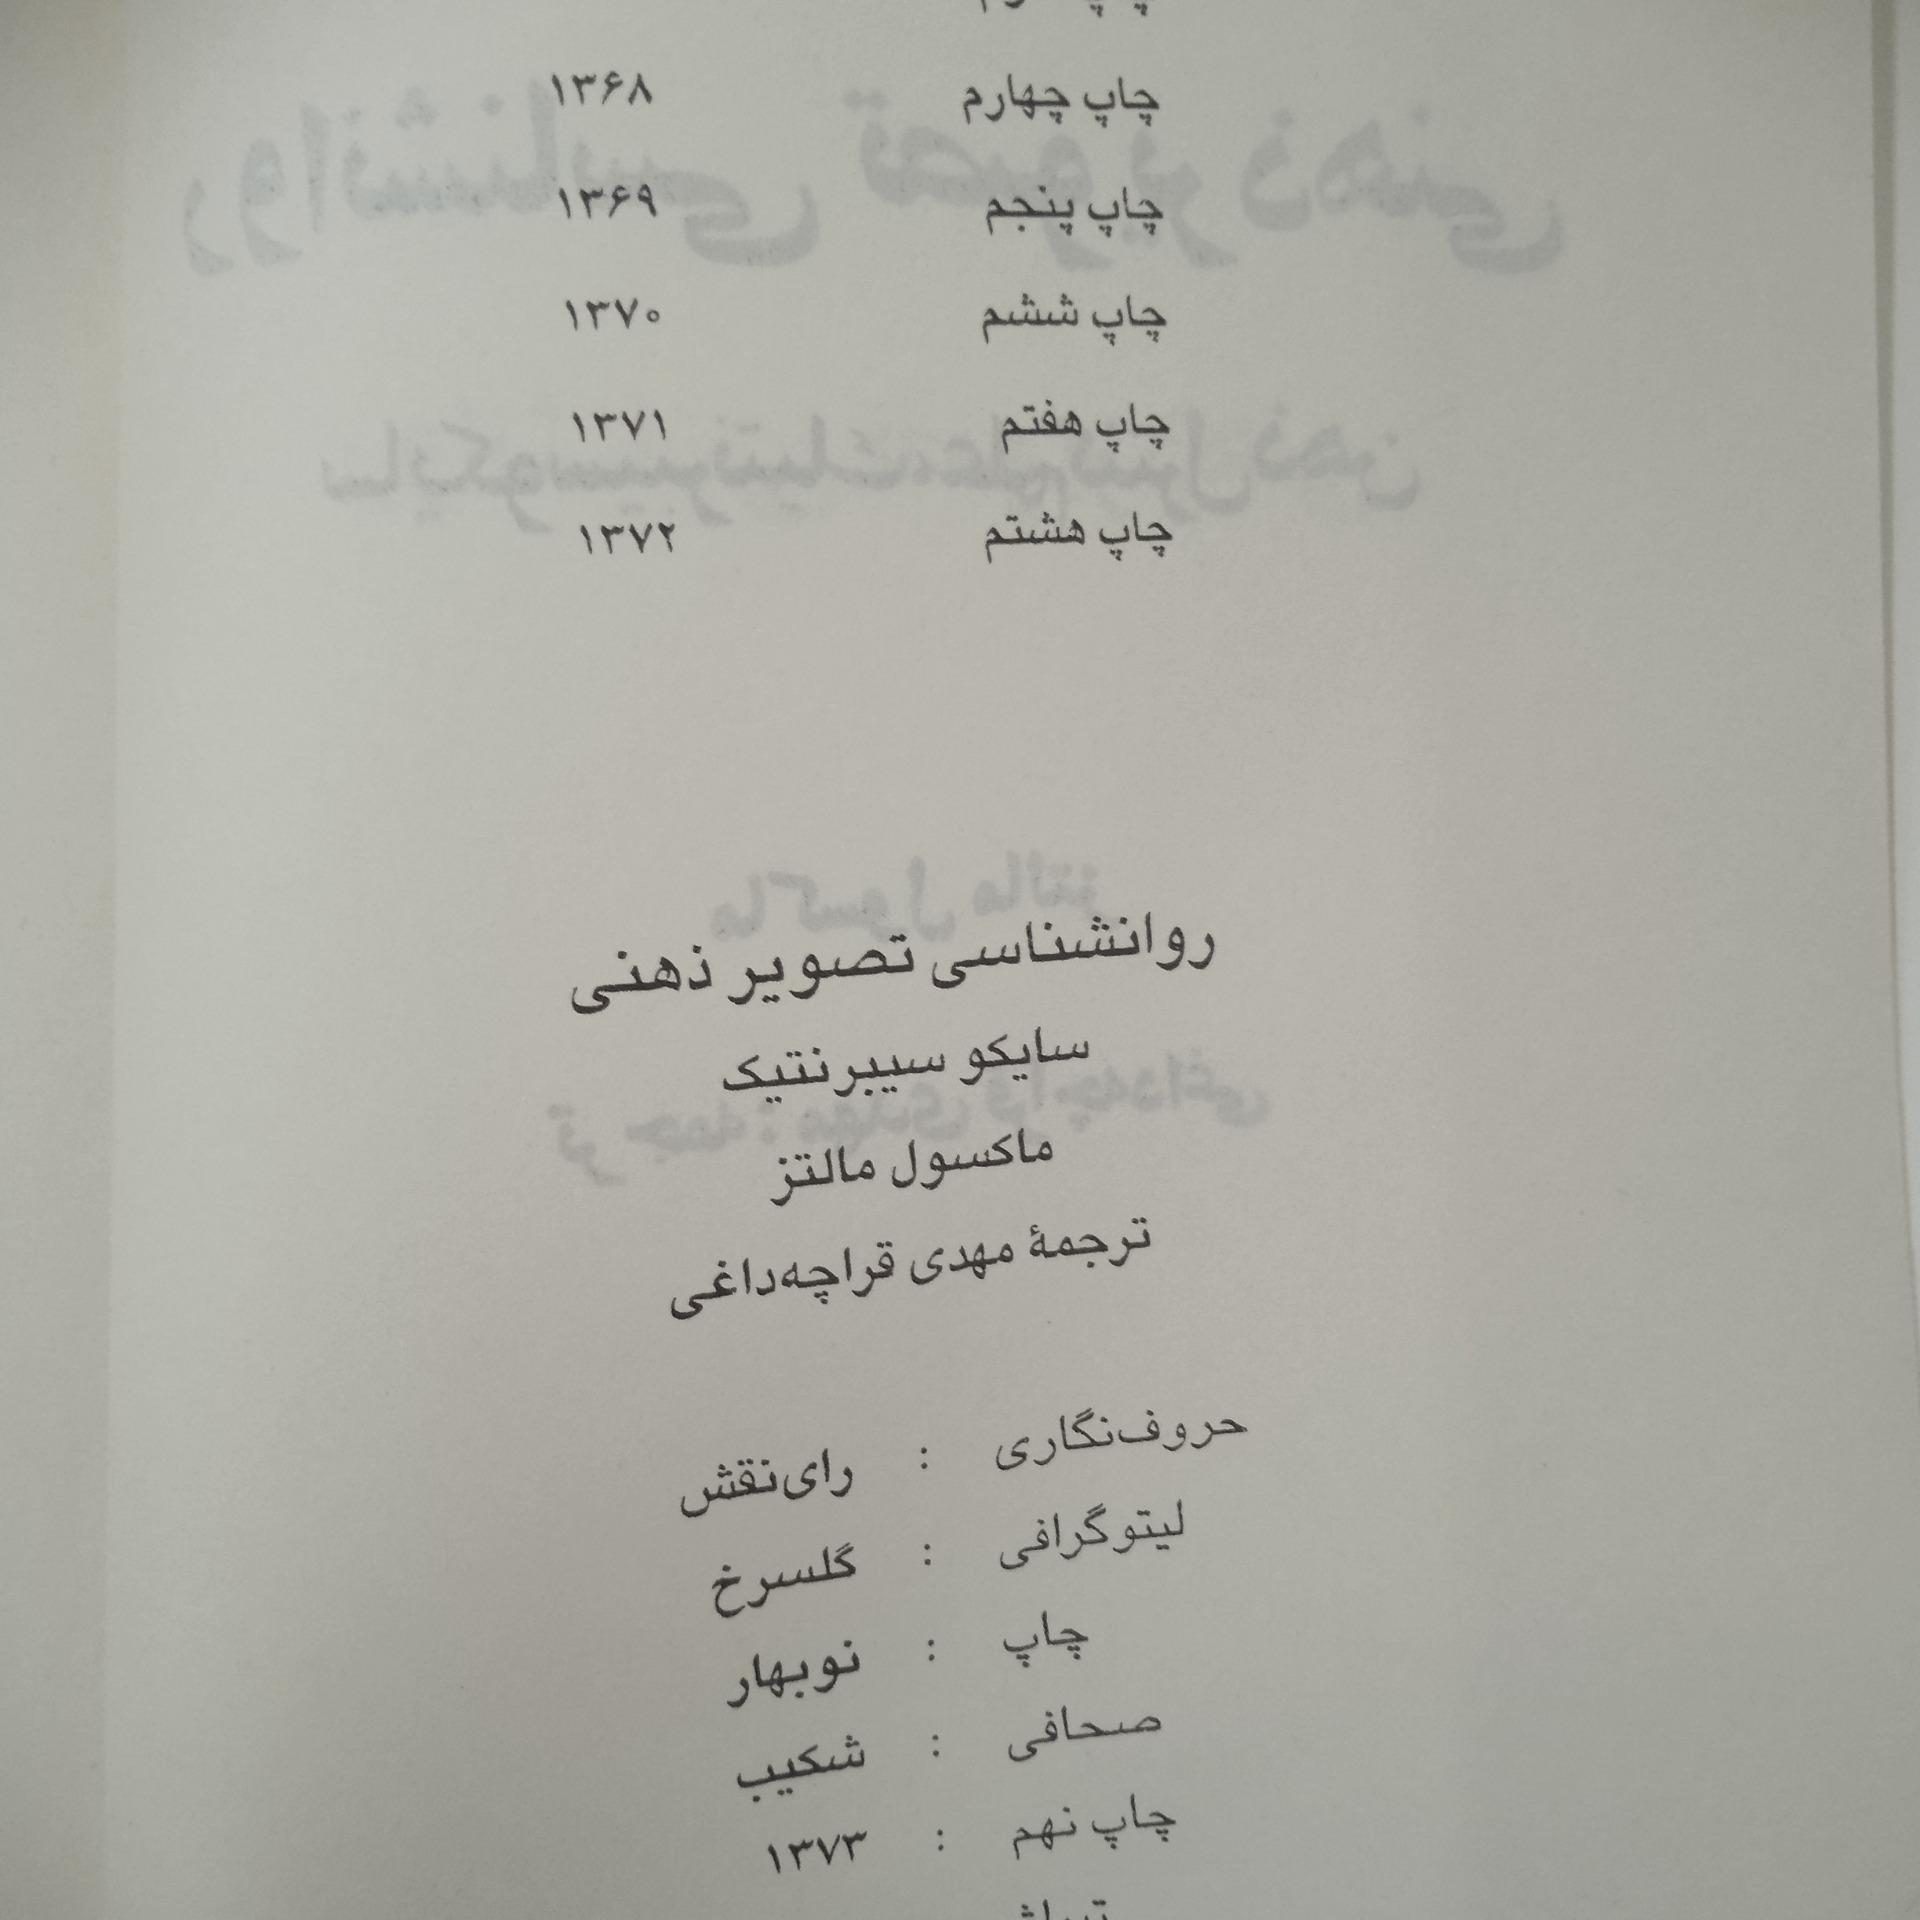 چاپ چهارم ۱۳۶۸
چاپ پنجم ۱۳۶۹
چاپ ششم ۱۳۷۰
چاپ هفتم ۱۳۷۱
چاپ هشتم ۱۳۷۲
روانشناسی تصویر ذهنی
سایکو سیبرنتیک
ماکسول مالتز
ترجمهٔ مهدی قراچه‌داغی
حروف‌نگاری : رای‌نقش
لیتوگرافی : گلسرخ
چاپ : نوبهار
صحافی : شکیب
چاپ نهم : ۱۳۷۳